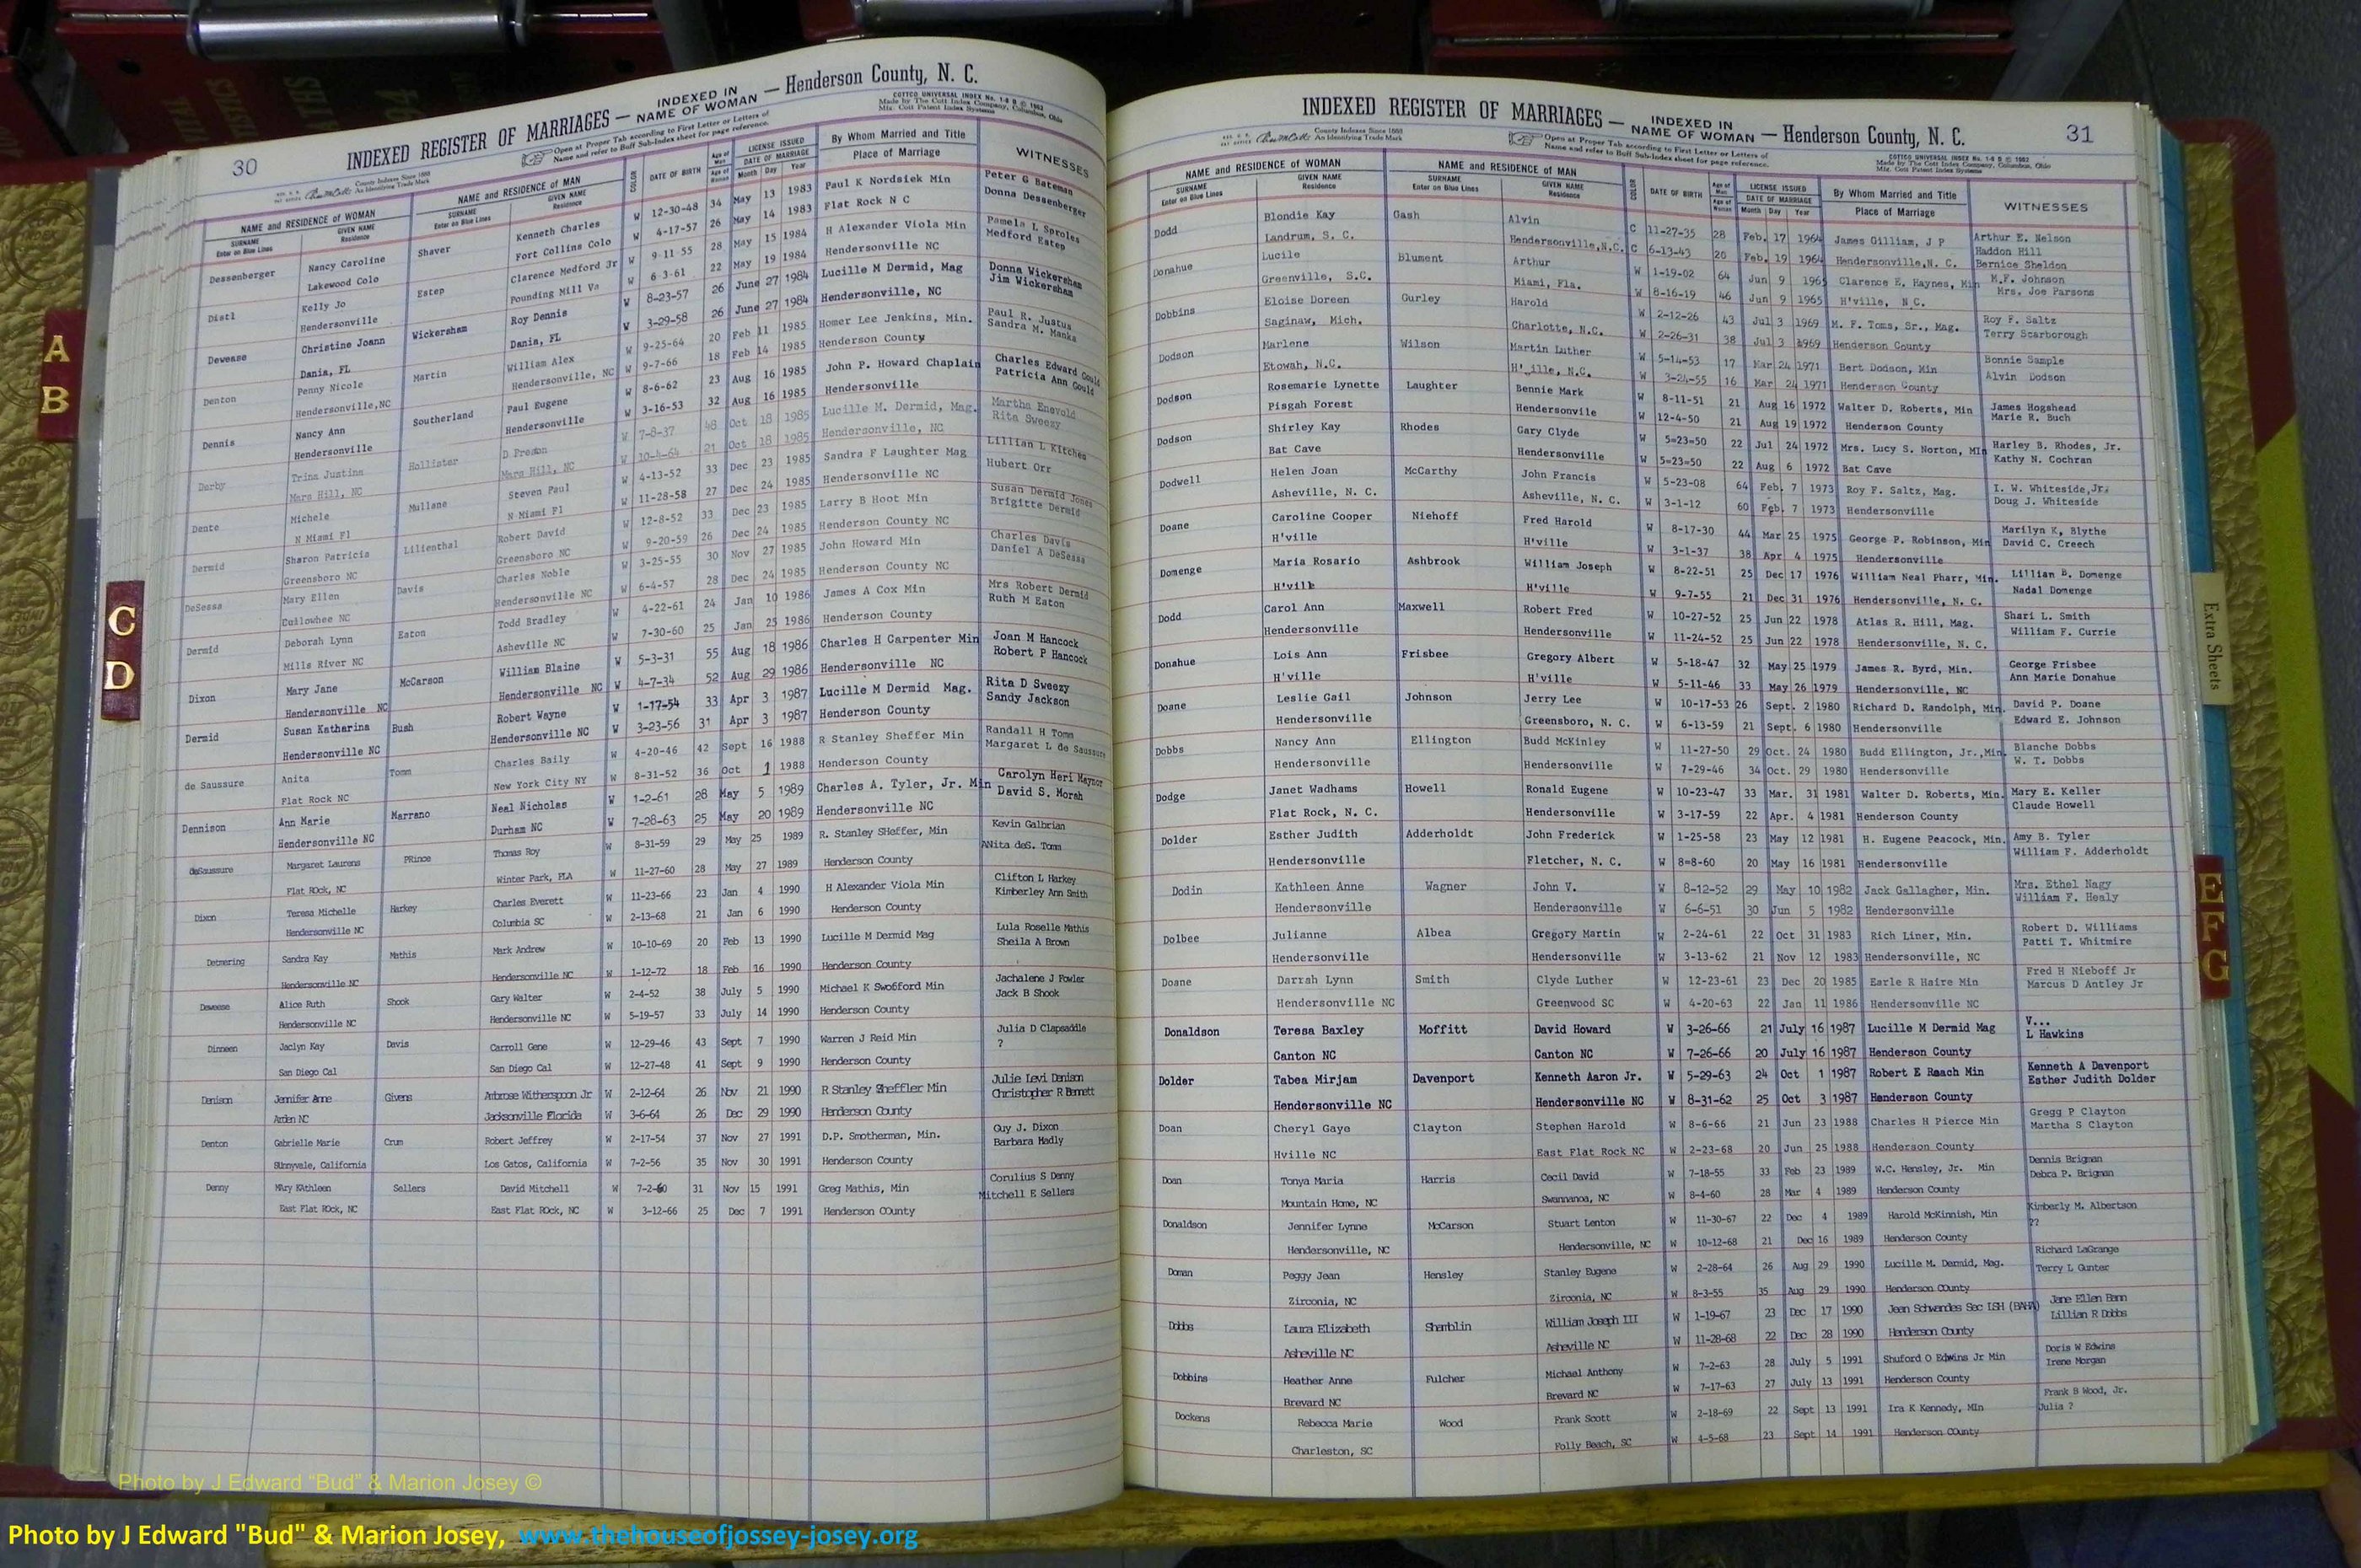 30
INDEXED REGISTER OF MARRIAGES — INDEXED IN NAME OF WOMAN — Henderson County, N. C.
County Indexes Since 1888
An Identifying Trade Mark
Open at Proper Tab according to First Letter or Letters of
Name and refer to Buff Sub-Index sheet for page reference.
COTTCO UNIVERSAL INDEX No. 1-8 B © 1962
Made by The Cott Index Company, Columbus, Ohio
Mfg. Cott Patent Index Systems
NAME and RESIDENCE of WOMAN NAME and RESIDENCE of MAN COLOR DATE OF BIRTH Age of Man LICENSE ISSUED By Whom Married and Title WITNESSES
SURNAME GIVEN NAME SURNAME GIVEN NAME Age of Woman DATE OF MARRIAGE Place of Marriage
Enter on Blue Lines Residence Enter on Blue Lines Residence Month Day Year
Dessenberger Nancy Caroline Shaver Kenneth Charles W 12-30-48 34 May 13 1983 Paul K Nordsiek Min Peter G Bateman
Lakewood Colo Fort Collins Colo W 4-17-57 26 May 14 1983 Flat Rock N C Donna Dessenberger
Distl Kelly Jo Estep Clarence Medford Jr W 9-11-55 28 May 15 1984 H Alexander Viola Min Pamela L Sproles
Hendersonville Pounding Mill Va W 6-3-61 22 May 19 1984 Hendersonville NC Medford Estep
Dewease Christine Joann Wickersham Roy Dennis W 8-23-57 26 June 27 1984 Lucille M Dermid, Mag Donna Wickersham
Dania, FL Dania, FL W 3-29-58 26 June 27 1984 Hendersonville, NC Jim Wickersham
Denton Penny Nicole Martin William Alex W 9-25-64 20 Feb 11 1985 Homer Lee Jenkins, Min. Paul R. Justus
Hendersonville,NC Hendersonville, NC W 9-7-66 18 Feb 14 1985 Henderson County Sandra M. Manka
Dennis Nancy Ann Southerland Paul Eugene W 8-6-62 23 Aug 16 1985 John P. Howard Chaplain Charles Edward Gould
Hendersonville Hendersonville W 3-16-53 32 Aug 16 1985 Hendersonville Patricia Ann Gould
Darby Trina Justina Hollister D Preston W 7-8-37 48 Oct 18 1985 Lucille M. Dermid, Mag. Martha Enevold
Mars Hill, NC Mars Hill, NC W 10-4-64 21 Oct 18 1985 Hendersonville, NC Rita Sweezy
Dente Michele Mullane Steven Paul W 4-13-52 33 Dec 23 1985 Sandra F Laughter Mag Lillian L Kitches
N Miami Fl N Miami Fl W 11-28-58 27 Dec 24 1985 Hendersonville NC Hubert Orr
Dermid Sharon Patricia Lilienthal Robert David W 12-8-52 33 Dec 23 1985 Larry B Hoot Min Susan Dermid Jones
Greensboro NC Greensboro NC W 9-20-59 26 Dec 24 1985 Henderson County NC Brigitte Dermid
DeSessa Mary Ellen Davis Charles Noble W 3-25-55 30 Nov 27 1985 John Howard Min Charles Davis
Cullowhee NC Hendersonville NC W 6-4-57 28 Dec 24 1985 Henderson County NC Daniel A DeSessa
Dermid Deborah Lynn Eaton Todd Bradley W 4-22-61 24 Jan 10 1986 James A Cox Min Mrs Robert Dermid
Mills River NC Asheville NC W 7-30-60 25 Jan 25 1986 Henderson County Ruth M Eaton
Dixon Mary Jane McCarson William Blaine W 5-3-31 55 Aug 18 1986 Charles H Carpenter Min Joan M Hancock
Hendersonville NC Hendersonville NC W 4-7-34 52 Aug 29 1986 Hendersonville NC Robert P Hancock
Dermid Susan Katharina Bush Robert Wayne W 1-17-54 33 Apr 3 1987 Lucille M Dermid Mag. Rita D Sweezy
Hendersonville NC Hendersonville NC W 3-23-56 31 Apr 3 1987 Henderson County Sandy Jackson
de Saussure Anita Tomm Charles Baily W 4-20-46 42 Sept 16 1988 R Stanley Sheffer Min Randall H Tomm
Flat Rock NC New York City NY W 8-31-52 36 Oct 1 1988 Henderson County Margaret L de Saussure
Dennison Ann Marie Marrano Neal Nicholas W 1-2-61 28 May 5 1989 Charles A. Tyler, Jr. Min Carolyn Heri Maynor
Hendersonville NC Durham NC W 7-28-63 25 May 20 1989 Hendersonville NC David S. Morah
deSaussure Margaret Laurens PRince Thomas Roy W 8-31-59 29 May 25 1989 R. Stanley SHeffer, Min Kevin Galbrian
Flat ROck, NC Winter Park, FLA W 11-27-60 28 May 27 1989 Henderson County ANita deS. Tomm
Dixon Teresa Michelle Harkey Charles Everett W 11-23-66 23 Jan 4 1990 H Alexander Viola Min Clifton L Harkey
Hendersonville NC Columbia SC W 2-13-68 21 Jan 6 1990 Henderson County Kimberley Ann Smith
Detmering Sandra Kay Mathis Mark Andrew W 10-10-69 20 Feb 13 1990 Lucille M Dermid Mag Lula Roselle Mathis
Hendersonville NC Hendersonville NC W 1-12-72 18 Feb 16 1990 Henderson County Sheila A Brown
Deweese Alice Ruth Shook Gary Walter W 2-4-52 38 July 5 1990 Michael K Swofford Min Jachalene J Fowler
Hendersonville NC Hendersonville NC W 5-19-57 33 July 14 1990 Henderson County Jack B Shook
Dinneen Jaclyn Kay Davis Carroll Gene W 12-29-46 43 Sept 7 1990 Warren J Reid Min Julia D Clapsaddle
San Diego Cal San Diego Cal W 12-27-48 41 Sept 9 1990 Henderson County ?
Denison Jennifer Anne Givens Ambrose Witherspoon Jr W 2-12-64 26 Nov 21 1990 R Stanley Sheffler Min Julie Levi Denison
Arden NC Jacksonville Florida W 3-6-64 26 Dec 29 1990 Henderson County Christopher R Bennett
Denton Gabrielle Marie Crum Robert Jeffrey W 2-17-54 37 Nov 27 1991 D.P. Smotherman, Min. Guy J. Dixon
SUnnyvale, California Los Gatos, California W 7-2-56 35 Nov 30 1991 Henderson County Barbara Madly
Denny MAry KAthleen Sellers David Mitchell W 7-2-60 31 Nov 15 1991 Greg Mathis, Min Corulius S Denny
East Flat ROck, NC East Flat ROck, NC W 3-12-66 25 Dec 7 1991 Henderson COunty Mitchell E Sellers
31
INDEXED REGISTER OF MARRIAGES — INDEXED IN NAME OF WOMAN — Henderson County, N. C.
County Indexes Since 1888
An Identifying Trade Mark
Open at Proper Tab according to First Letter or Letters of
Name and refer to Buff Sub-Index sheet for page reference.
COTTCO UNIVERSAL INDEX No. 1-8 B © 1962
Made by The Cott Index Company, Columbus, Ohio
Mfg. Cott Patent Index Systems
NAME and RESIDENCE of WOMAN NAME and RESIDENCE of MAN COLOR DATE OF BIRTH Age of Man LICENSE ISSUED By Whom Married and Title WITNESSES
SURNAME GIVEN NAME SURNAME GIVEN NAME Age of Woman DATE OF MARRIAGE Place of Marriage
Enter on Blue Lines Residence Enter on Blue Lines Residence Month Day Year
Dodd Blondie Kay Gash Alvin C 11-27-35 28 Feb. 17 1964 James Gilliam, J P Arthur E. Nelson
Landrum, S. C. Hendersonville,N.C. C 6-13-43 20 Feb. 19 1964 Hendersonville,N. C. Haddon Hill
Donahue Lucile Blument Arthur W 1-19-02 64 Jun 9 1965 Clarence E. Haynes, Min Bernice Sheldon M.F. Johnson
Greenville, S.C. Miami, Fla. W 8-16-19 46 Jun 9 1965 H'ville, N C. Mrs. Joe Parsons
Dobbins Eloise Doreen Gurley Harold W 2-12-26 43 Jul 3 1969 M. F. Toms, Sr., Mag. Roy F. Saltz
Saginaw, Mich. Charlotte, N.C. W 2-26-31 38 Jul 3 1969 Henderson County Terry Scarborough
Dodson Marlene Wilson Martin Luther W 5-14-53 17 Mar 24 1971 Bert Dodson, Min Bonnie Sample
Etowah, N.C. H'ille, N.C. W 3-24-55 16 Mar 24 1971 Henderson County Alvin Dodson
Dodson Rosemarie Lynette Laughter Bennie Mark W 8-11-51 21 Aug 16 1972 Walter D. Roberts, Min James Hogshead
Pisgah Forest Hendersonvile W 12-4-50 21 Aug 19 1972 Henderson County Marie R. Buch
Dodson Shirley Kay Rhodes Gary Clyde W 5=23=50 22 Jul 24 1972 Mrs. Lucy S. Norton, MIn Harley B. Rhodes, Jr.
Bat Cave Hendersonville W 5=23=50 22 Aug 6 1972 Bat Cave Kathy N. Cochran
Dodwell Helen Joan McCarthy John Francis W 5-23-08 64 Feb. 7 1973 Roy F. Saltz, Mag. I. W. Whiteside,Jr.
Asheville, N. C. Asheville, N. C. W 3-1-12 60 Feb. 7 1973 Hendersonville Doug J. Whiteside
Doane Caroline Cooper Niehoff Fred Harold W 8-17-30 44 Mar 25 1975 George P. Robinson, Min Marilyn K, Blythe
H'ville H'ville W 3-1-37 38 Apr 4 1975 Hendersonville David C. Creech
Domenge Maria Rosario Ashbrook William Joseph W 8-22-51 25 Dec 17 1976 William Neal Pharr, Min. Lillian B. Domenge
H'ville H'ville W 9-7-55 21 Dec 31 1976 Hendersonville, N. C. Nadal Domenge
Dodd Carol Ann Maxwell Robert Fred W 10-27-52 25 Jun 22 1978 Atlas R. Hill, Mag. Shari L. Smith
Hendersonville Hendersonville W 11-24-52 25 Jun 22 1978 Hendersonville, N. C. William F. Currie
Donahue Lois Ann Frisbee Gregory Albert W 5-18-47 32 May 25 1979 James R. Byrd, Min. George Frisbee
H'ville H'ville W 5-11-46 33 May 26 1979 Hendersonville, NC Ann Marie Donahue
Doane Leslie Gail Johnson Jerry Lee W 10-17-53 26 Sept. 2 1980 Richard D. Randolph, Min. David P. Doane
Hendersonville Greensboro, N. C. W 6-13-59 21 Sept. 6 1980 Hendersonville Edward E. Johnson
Dobbs Nancy Ann Ellington Budd McKinley W 11-27-50 29 Oct. 24 1980 Budd Ellington, Jr.,Min. Blanche Dobbs
Hendersonville Hendersonville W 7-29-46 34 Oct. 29 1980 Hendersonville W. T. Dobbs
Dodge Janet Wadhams Howell Ronald Eugene W 10-23-47 33 Mar. 31 1981 Walter D. Roberts, Min. Mary E. Keller
Flat Rock, N. C. Hendersonville W 3-17-59 22 Apr. 4 1981 Henderson County Claude Howell
Dolder Esther Judith Adderholdt John Frederick W 1-25-58 23 May 12 1981 H. Eugene Peacock, Min. Amy B. Tyler
Hendersonville Fletcher, N. C. W 8=8-60 20 May 16 1981 Hendersonville William F. Adderholdt
Dodin Kathleen Anne Wagner John V. W 8-12-52 29 May 10 1982 Jack Gallagher, Min. Mrs. Ethel Nagy
Hendersonville Hendersonville W 6-6-51 30 Jun 5 1982 Hendersonville William F. Healy
Dolbee Julianne Albea Gregory Martin W 2-24-61 22 Oct 31 1983 Rich Liner, Min. Robert D. Williams
Hendersonville Hendersonville W 3-13-62 21 Nov 12 1983 Hendersonville, NC Patti T. Whitmire
Doane Darrah Lynn Smith Clyde Luther W 12-23-61 23 Dec 20 1985 Earle R Haire Min Fred H Nieboff Jr
Hendersonville NC Greenwood SC W 4-20-63 22 Jan 11 1986 Hendersonville NC Marcus D Antley Jr
Donaldson Teresa Baxley Moffitt David Howard W 3-26-66 21 July 16 1987 Lucille M Dermid Mag V...
Canton NC Canton NC W 7-26-66 20 July 16 1987 Henderson County L Hawkins
Dolder Tabea Mirjam Davenport Kenneth Aaron Jr. W 5-29-63 24 Oct 1 1987 Robert E Roach Min Kenneth A Davenport
Hendersonville NC Hendersonville NC W 8-31-62 25 Oct 3 1987 Henderson County Esther Judith Dolder
Doan Cheryl Gaye Clayton Stephen Harold W 8-6-66 21 Jun 23 1988 Charles H Pierce Min Gregg P Clayton
Hville NC East Flat Rock NC W 2-23-68 20 Jun 25 1988 Henderson County Martha S Clayton
Doan Tonya Maria Harris Cecil David W 7-18-55 33 Feb 23 1989 W.C. Hensley, Jr. Min Dennis Brigman
Mountain Home, NC Swannanoa, NC W 8-4-60 28 Mar 4 1989 Henderson County Debra P. Brigman
Donaldson Jennifer Lynne McCarson Stuart Lenton W 11-30-67 22 Dec 4 1989 Harold McKinnish, Min Kimberly M. Albertson
Hendersonville, NC Hendersonville, NC W 10-12-68 21 Dec 16 1989 Henderson County ??
Doman Peggy Jean Hensley Stanley Eugene W 2-28-64 26 Aug 29 1990 Lucille M. Dermid, Mag. Richard LaGrange
Zirconia, NC Zirconia, NC W 8-3-55 35 Aug 29 1990 Henderson COunty Terry L Gunter
Dobbs Laura Elizabeth Shamblin William Joseph III W 1-19-67 23 Dec 17 1990 Jean Schwandes Sec LSH (BAHA) Jane Ellen Bann
Asheville NC Asheville NC W 11-28-68 22 Dec 28 1990 Henderson County Lillian R Dobbs
Dobbins Heather Anne Fulcher Michael Anthony W 7-2-63 28 July 5 1991 Shuford O Edwins Jr Min Doris W Edwins
Brevard NC Brevard NC W 7-17-63 27 July 13 1991 Henderson County Irene Morgan
Dockens Rebecca Marie Wood Frank Scott W 2-18-69 22 Sept 13 1991 Ira K Kennedy, MIn Frank B Wood, Jr.
Charleston, SC Folly Beach, SC W 4-5-68 23 Sept 14 1991 Henderson COunty Julia ?
A
B
C
D
Extra Sheets
E
F
G
Photo by J Edward "Bud" & Marion Josey ©
Photo by J Edward "Bud" & Marion Josey, www.thehouseofjossey-josey.org